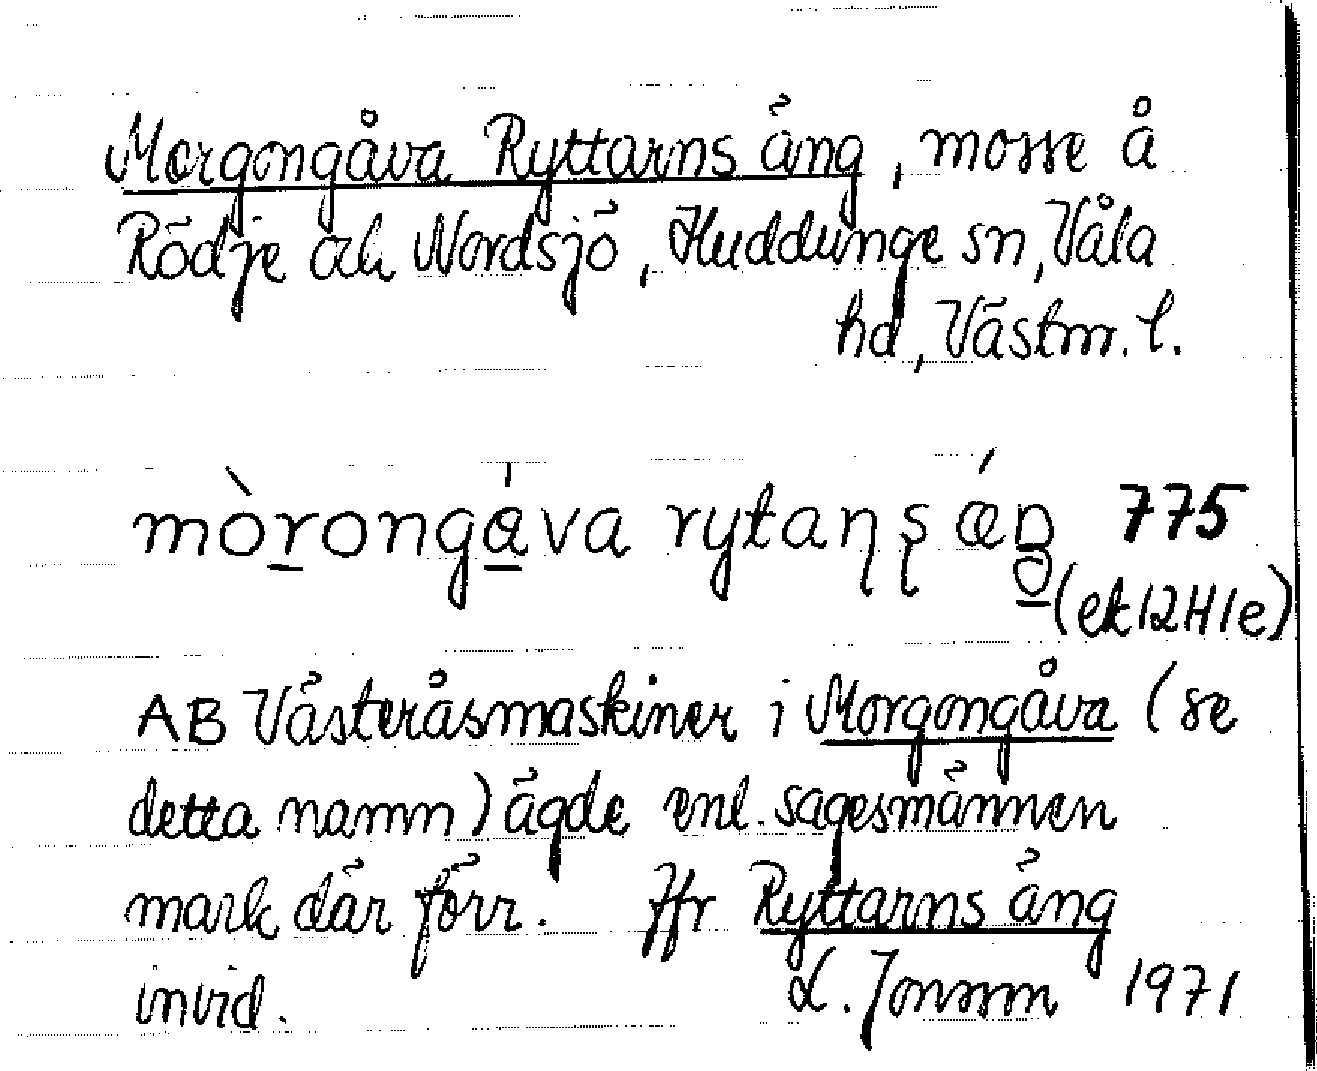 Morgongåva Ryttarns äng, mosse å
Rödje och Nordsjö, Huddunge sn, Våla
hd, Västm. l.
mòr̲ongá̲va rytaɳ ʂ ǽŋ̲ 775
(ek 12H1e)
AB Västeråsmaskiner i Morgongåva (se
detta namn) ägde enl. sagesmännen
mark där förr. Jfr Ryttarns äng
invid. L. Jonsson 1971